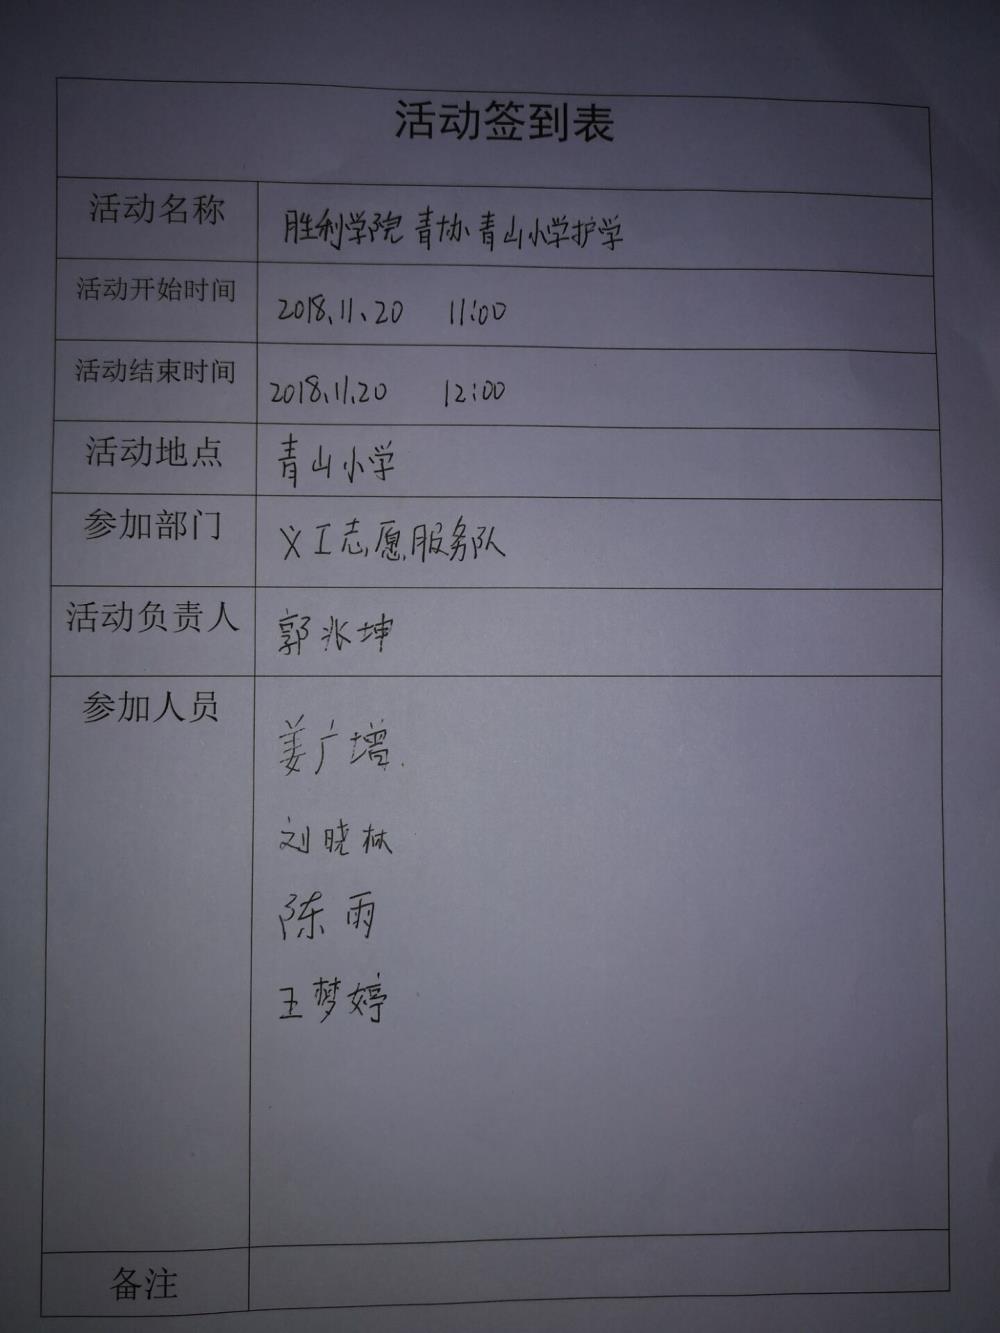 活动签到表
活动名称 胜利学院青协青山小学护学
活动开始时间 2018.11.20 11:00
活动结束时间 2018.11.20 12:00
活动地点 青山小学
参加部门 义工志愿服务队
活动负责人 郭兆坤
参加人员 姜广增
刘晓林
陈雨
王梦婷
备注